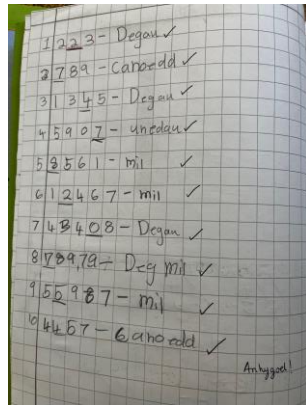 1 223 - Degau ✓
2 789 - Canoedd ✓
3 1345 - Degau ✓
4 5907 - unedau ✓
5 8561 - mil ✓
6 12467 - mil ✓
7 43408 - Degau ✓
8 78979 - Deg mil ✓
9 55987 - mil ✓
10 4457 - Canoedd ✓
Anhygoel!